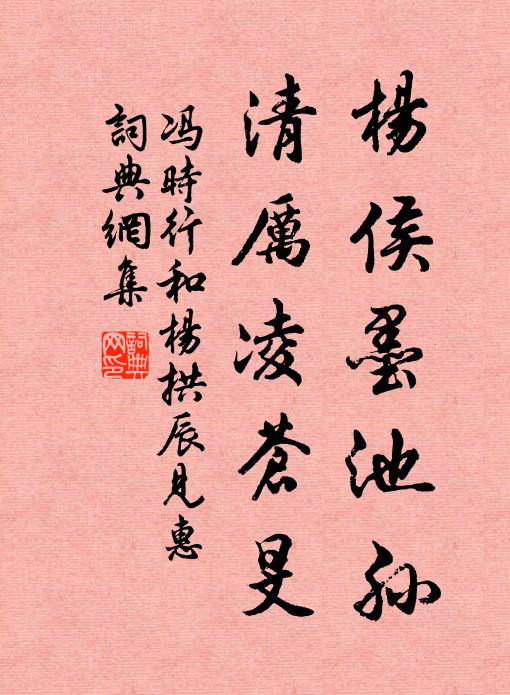 楊侯墨池孫
清厲凌蒼旻
馮時行和楊拱辰見惠
詞典網集
詞典網印